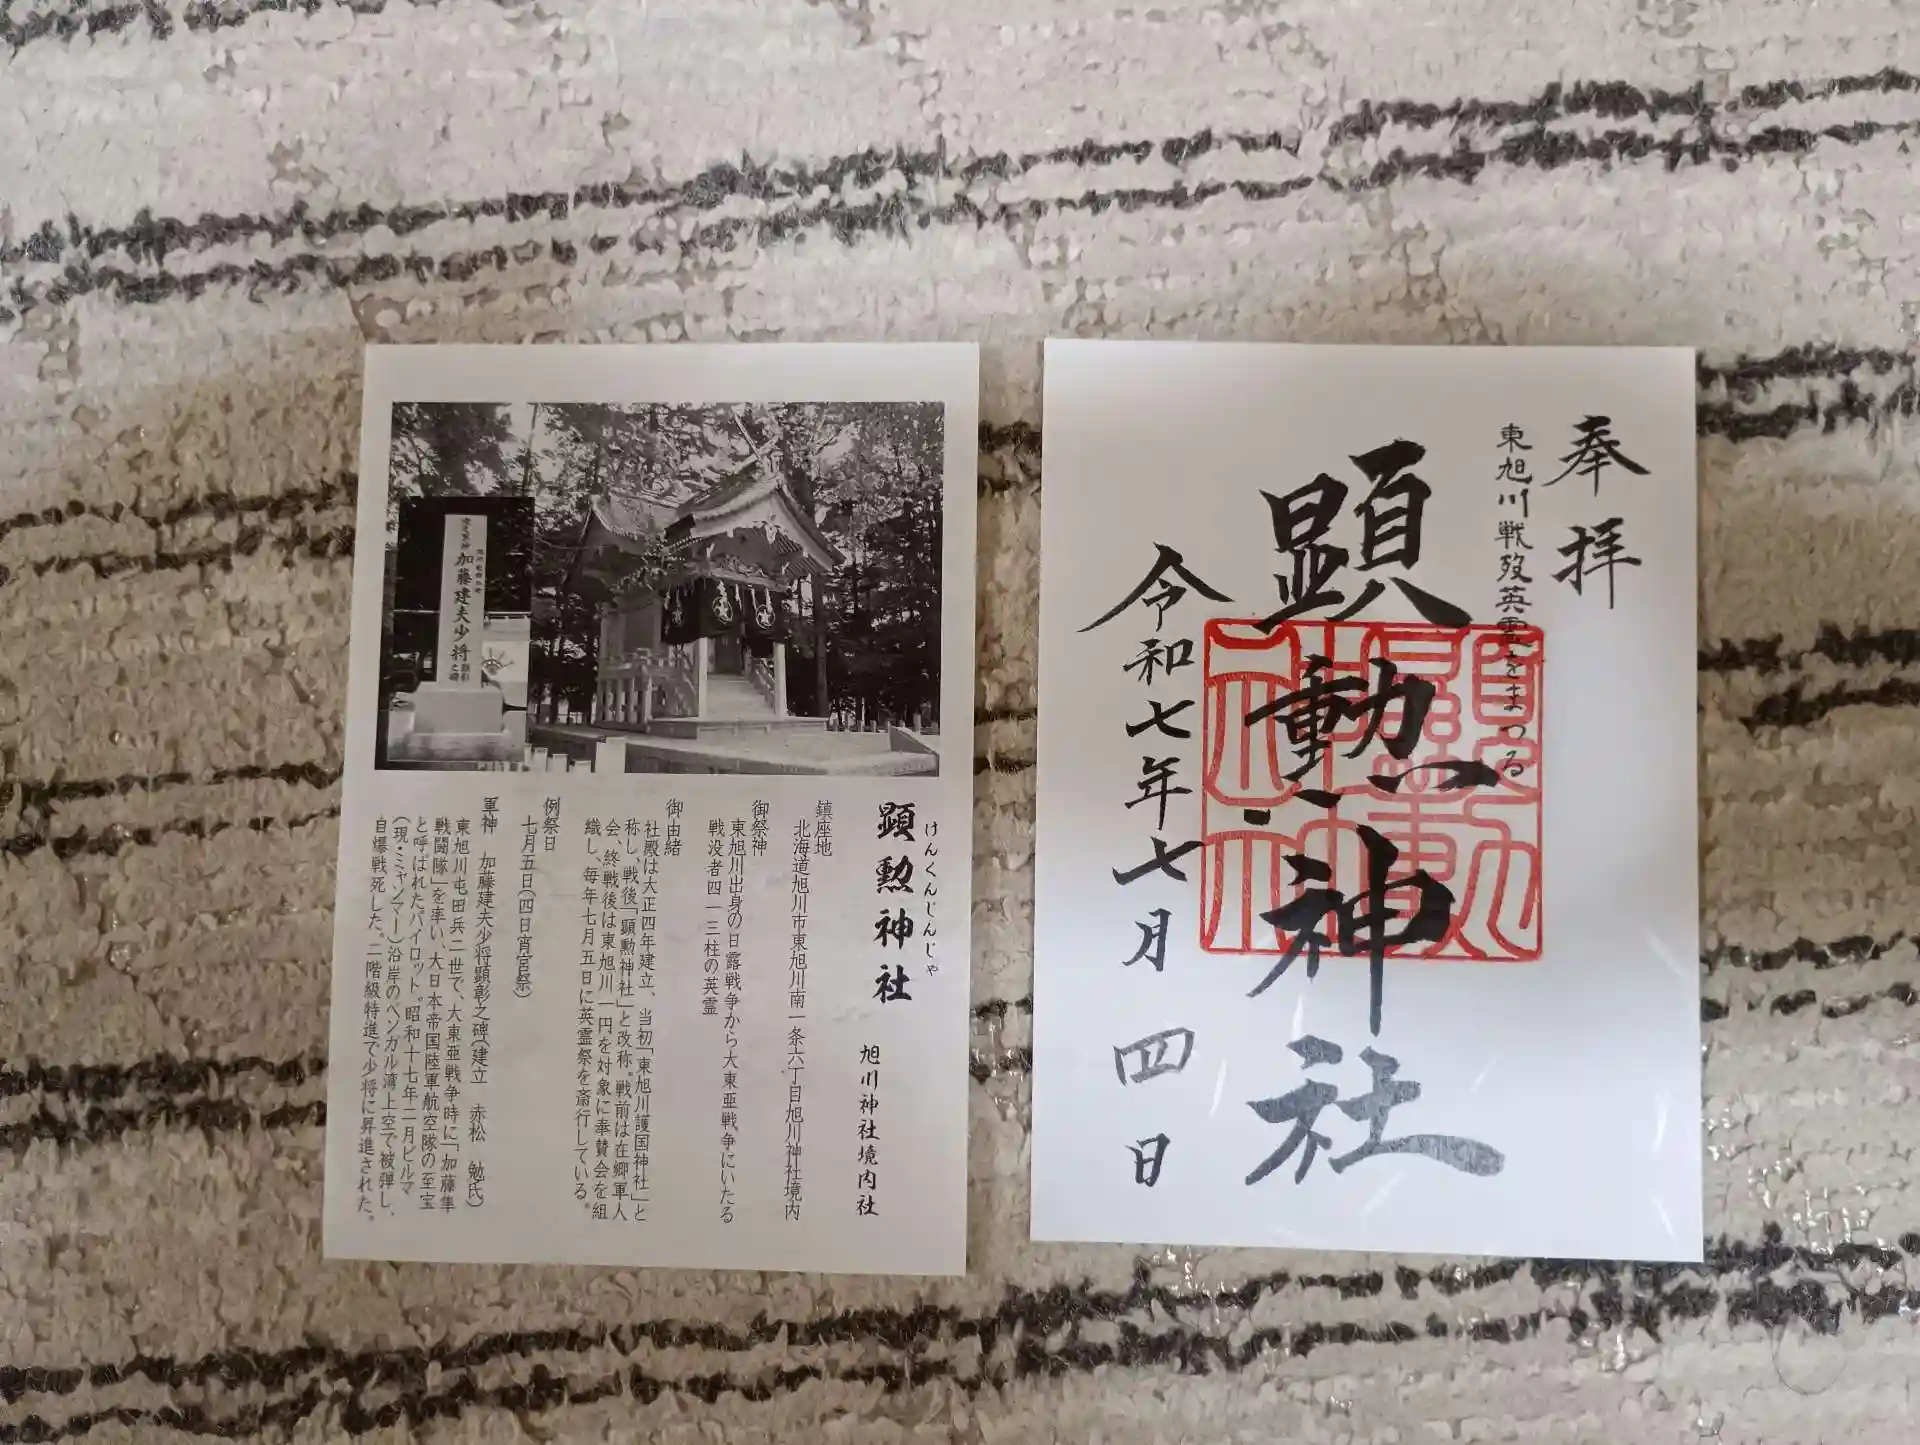 加藤建夫少将
顕彰
之碑
けんくんじんじゃ
顕勲神社
旭川神社境内社
鎮座地
北海道旭川市東旭川南一条六丁目旭川神社境内
御祭神
東旭川出身の日露戦争から大東亜戦争にいたる
戦没者四一三柱の英霊
御由緒
社殿は大正四年建立、当初「東旭川護国神社」と
称し、戦後「顕勲神社」と改称。戦前は在郷軍人
会、終戦後は東旭川一円を対象に奉賛会を組
織し、毎年七月五日に英霊祭を斎行している。
例祭日
七月五日(四日宵宮祭)
軍神 加藤建夫少将顕彰之碑(建立 赤松 勉氏)
東旭川屯田兵二世で、大東亜戦争時に「加藤隼
戦闘隊」を率い、大日本帝国陸軍航空隊の至宝
と呼ばれたパイロット。昭和十七年二月ビルマ
(現・ミャンマー)沿岸のベンガル湾上空で被弾し、
自爆戦死した。二階級特進で少将に昇進された。
奉拝
東旭川戦歿英霊をまつる
顕勲神社
令和七年七月四日
顕勲神社